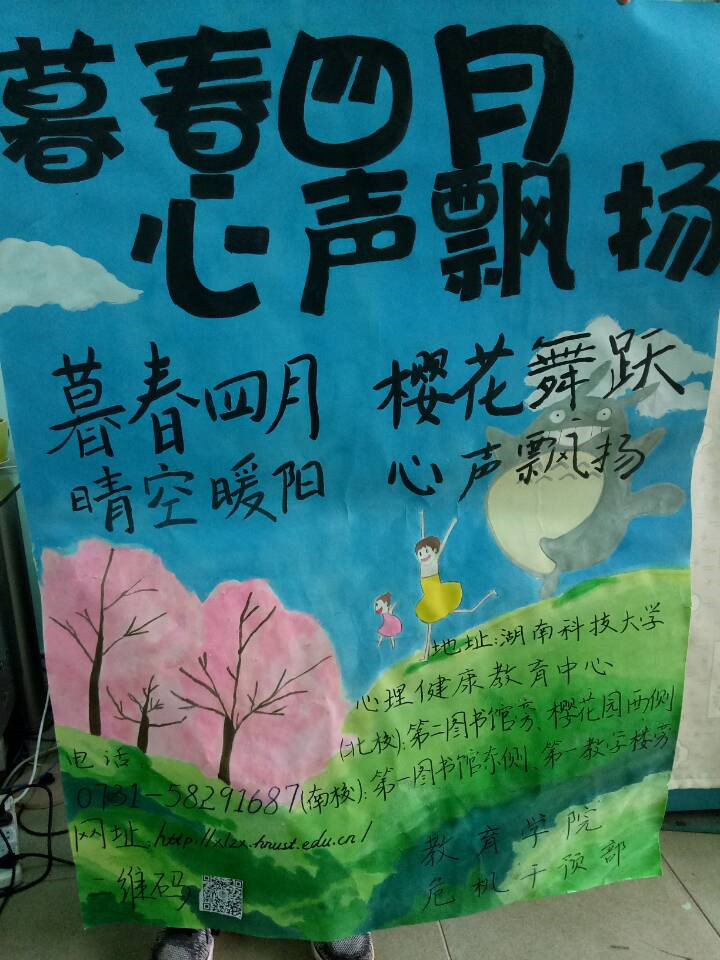 暮春四月
心声飘扬
暮春四月 樱花舞跃
晴空暖阳 心声飘扬
地址:湖南科技大学
心理健康教育中心
(北校):第二图书馆旁、樱花园西侧
(南校):第一图书馆东侧、第一教学楼旁
电话
0731-58291687
网址:http://xlzx.hnust.edu.cn/
二维码
教育学院
危机干预部